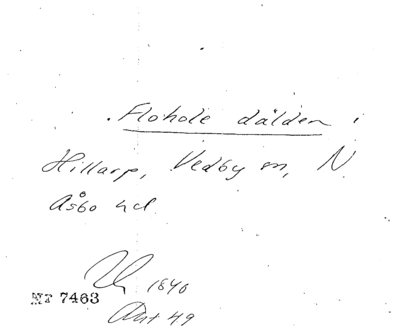 Flohole dälden i
Hillarp, Vedby sn, N.
Åsbo hd.
1840
NT 7463
Ant 49